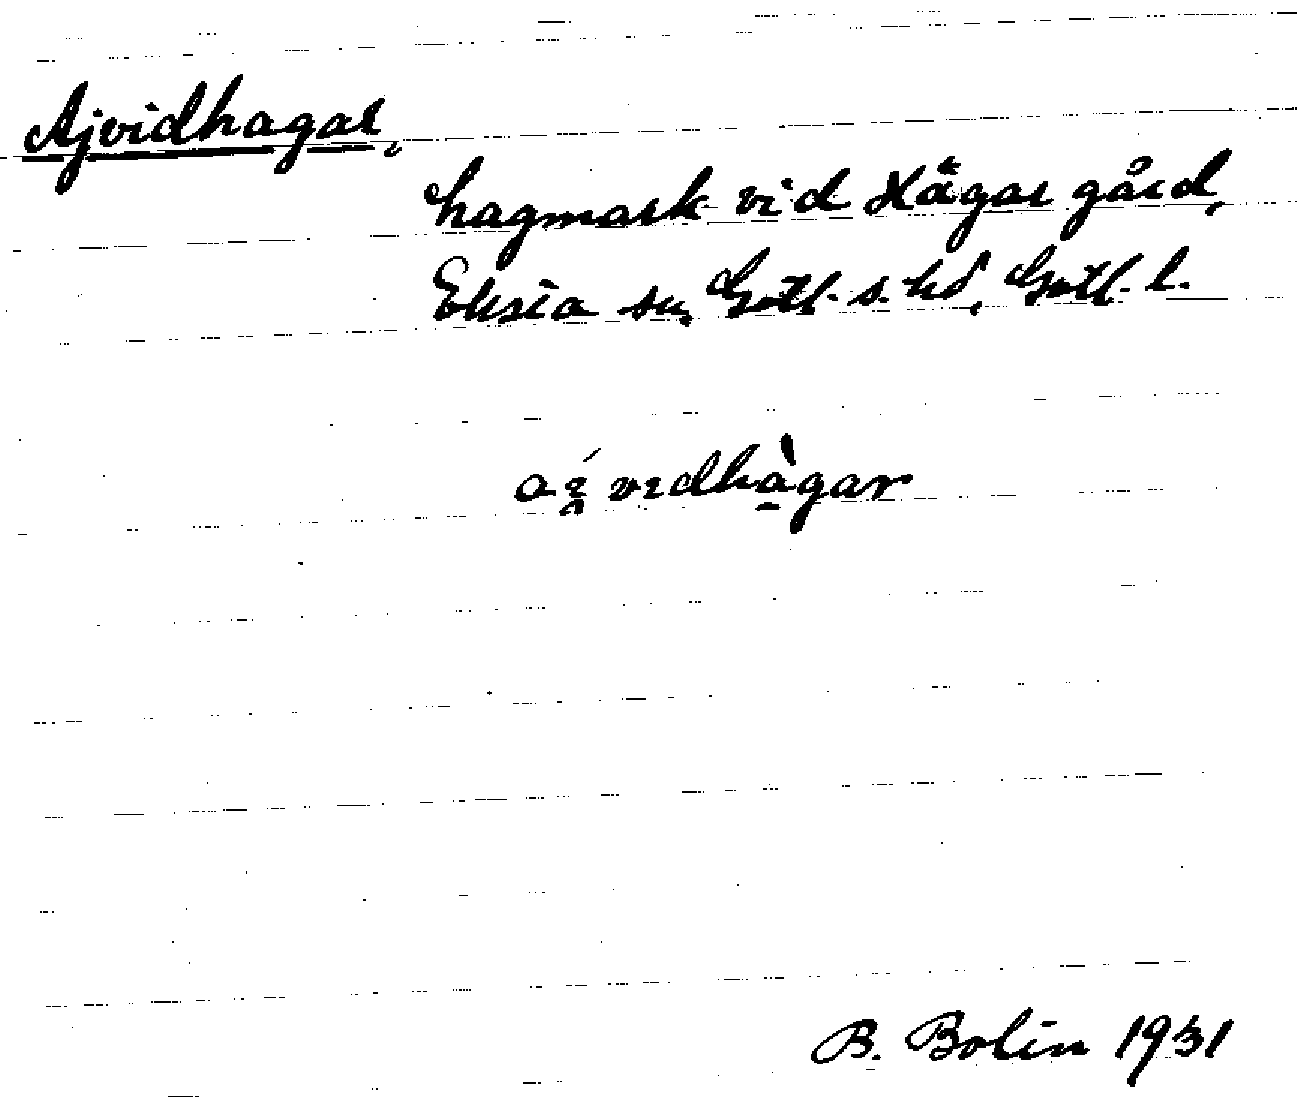 Ajvidhagar,
hagmark vid Hägar gård,
Eksta sn, Gotl. s. hd, Gotl. l.
aı̯́vıdhàgar
B. Bolin 1931